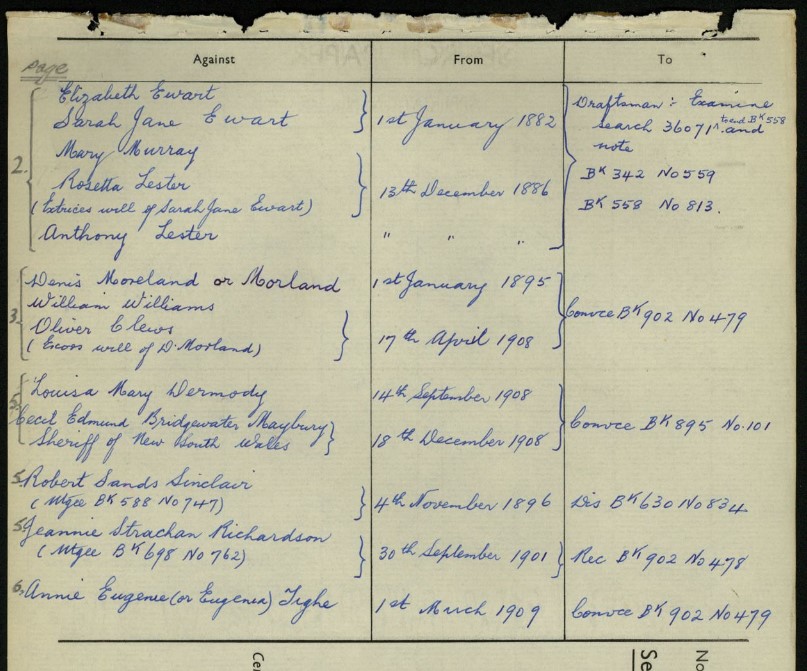 Against From To
Page
Elizabeth Ewart
Sarah Jane Ewart 1st January 1882
Draftsman:- Examine
search 36071 ^ to end BK 558 and
note
2. Mary Murray
Rosetta Lester 13th December 1886
(Extrices will of Sarah Jane Ewart)
BK 342 No 559
BK 558 No 813.
Anthony Lester " " "
3. Denis Moreland or Morland 1st January 1895
William Williams
Oliver Clews 17th April 1908
(Excors will of D. Morland)
Convce BK 902 No 479
5. Louisa Mary Dermody 14th September 1908
Cecil Edmund Bridgewater Maybury
Sheriff of New South Wales 18th December 1908
Convce BK 895 No. 101
5. Robert Sands Sinclair
(Mtgee BK 588 No 747) 4th November 1896 Dis BK 630 No 834
5. Jeannie Strachan Richardson
(Mtgee BK 698 No 762) 30th September 1901 Rec BK 902 No 478
6. Annie Eugenie (or Eugenia) Tighe 1st March 1909 Convce BK 902 No 479
Cer
Se
No